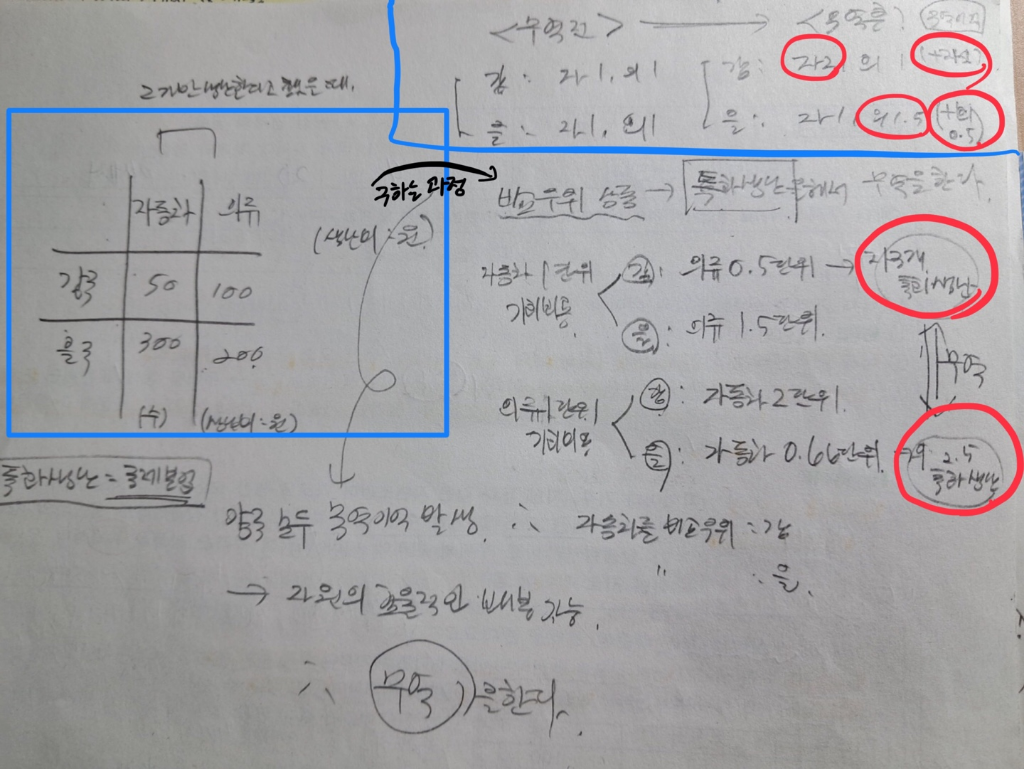 <무역전> → <무역후>
갑: 자1, 의1
을: 자1, 의1
갑: 자2, 의1 (+자1)
을: 자1, 의1.5 (+의 0.5)
2가지만 생산한다고 했을 때,
자동차 의류
(생산비:원)
갑국 50 100
을국 300 200
(수) (생산비:원)
구하는 과정
비교우위 상품 → 특화생산 통해서 무역을 한다.
자동차 1단위 기회비용
갑: 의류 0.5단위 → 자3개 특화생산
을: 의류 1.5단위.
무역
의류 1단위 기회비용
갑: 자동차 2단위.
을: 자동차 0.66단위 → 의 2.5 특화생산
특화생산 =
양국 모두 무역이익 발생. ∴ 자동차를 비교우위: 갑
" : 을.
→ 자원의 효율적인 배분 가능.
∴ 무역을한다.